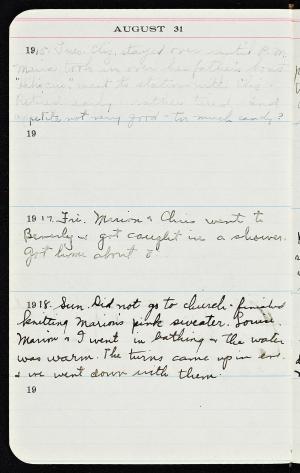 AUGUST 31
1915. Tues. Chis. stayed over until P.M.
Marion took in on her father's boat
went to station with Chis.
Retired early rather tired. And
appetite not very good - too much candy?
19
1917. Fri. Marion & Chris went to
Beverly & got caught in a shower.
Got home about 5.
1918. Sun. Did not go to church - finished
knitting Marion's pink sweater. Louise
Marion & I went in bathing & the water
was warm. The turns came up in eve.
& we went down with them.
19